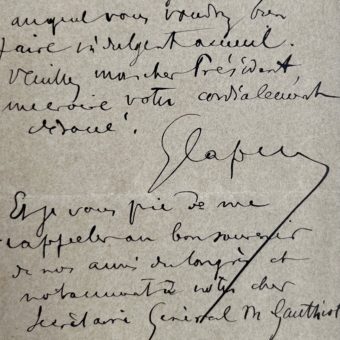 auquel vous voudrez bien
faire indulgent accueil.
Veuillez mon cher Président,
me croire votre cordialement
dévoué.
Et je vous prie de me
rappeler au bon souvenir
de nos amis du Congrès et
notamment à notre cher
Secrétaire Général M. Gauthiot